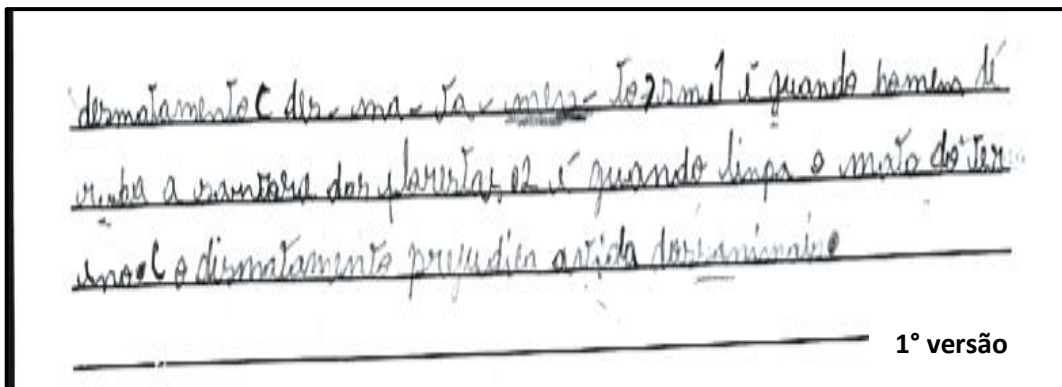 desmatamento C des-ma-ta-men-to z sm 1 é quando homem dé
ruba a dos florestas 2 é quando linpa o mato do ter
eno C o dismatamento prejudica avida dos animais
1° versão